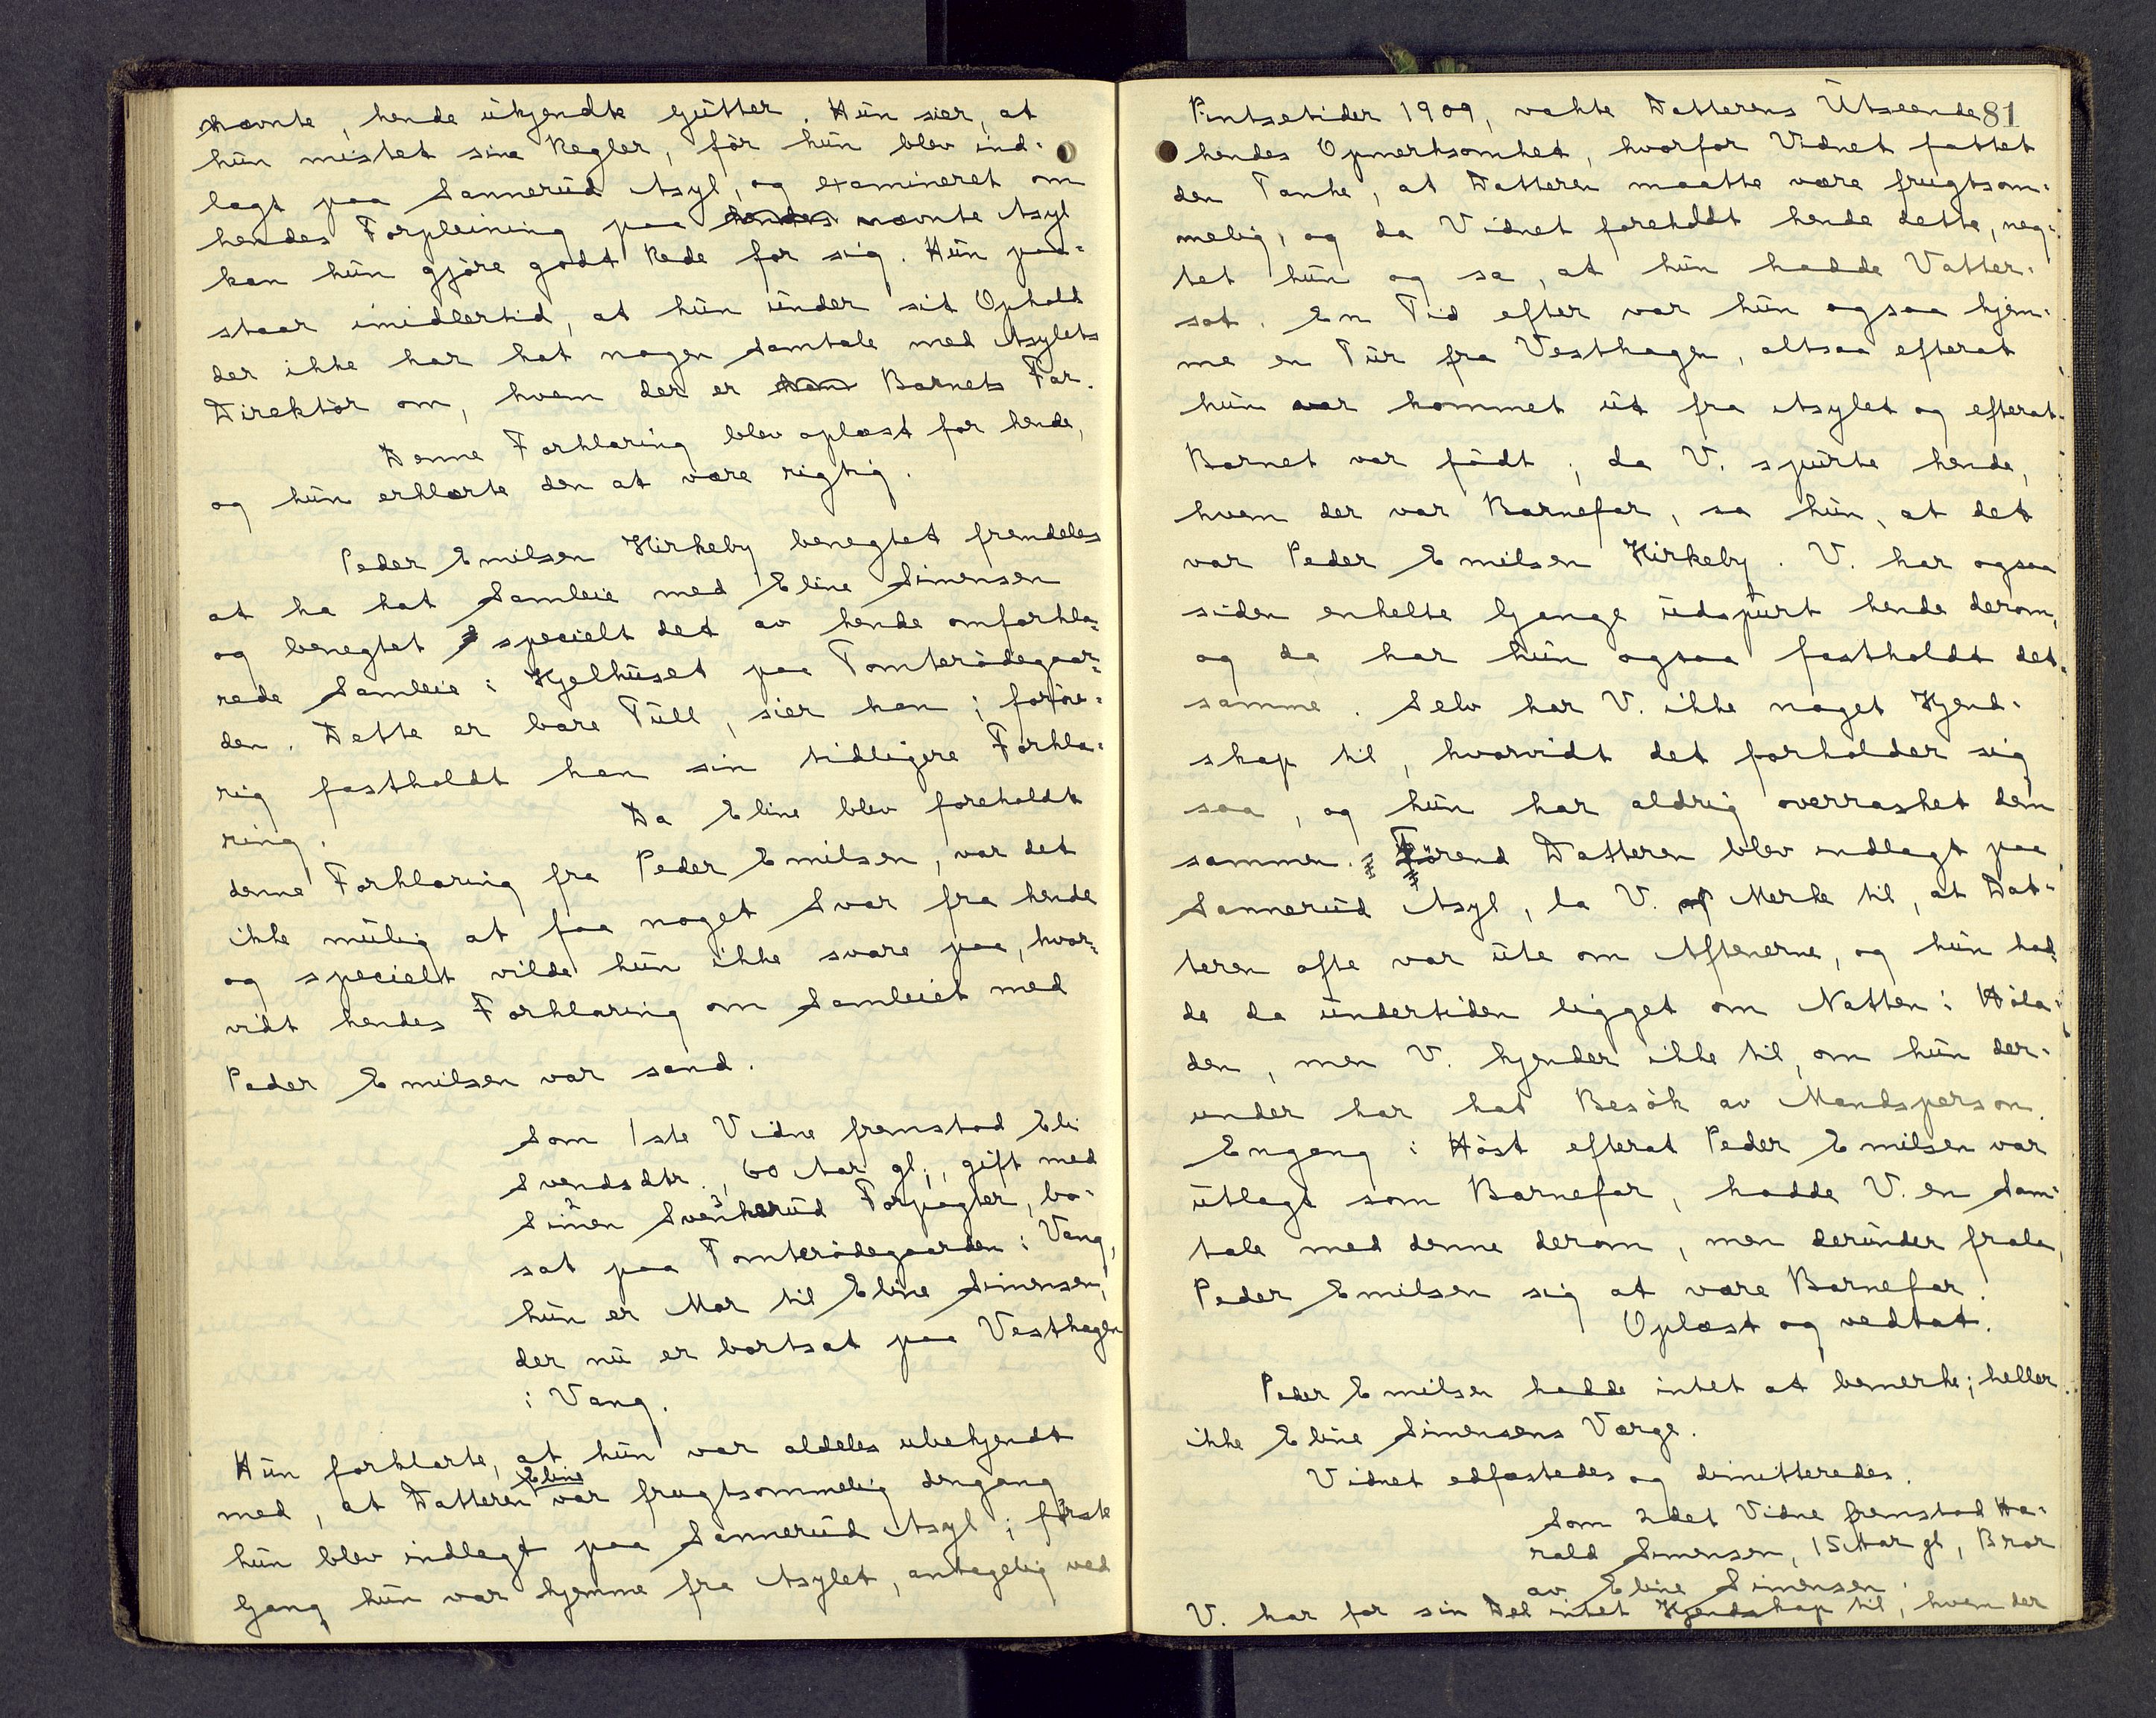 nævnte, hende ukjendte Gutter. Hun sier, at
hun mistet sine Regler, før hun blev ind-
lagt paa Sannerud Asyl, og examineret om
hendes Forpleining paa hendes nævnte Asyl
kan hun gjøre godt Rede for sig. Hun paa-
staar imidlertid, at hun under sit Ophold
der ikke har hat nogen Samtale med Asylets
Direktør om, hvem der er Barnets Far.
Denne Forklaring blev oplæst for hende,
og hun erklærte den at være rigtig.
Peder Emilsen Kirkeby benegtet fremdeles
at ha hat Samleie med Eline Simensen
og benegtet specielt det av hende omforkla-
rede Samleie i Kjelhuset paa Tomterødegaar-
den. Dette er bare Tull, sier han; forøv-
rig fastholdt han sin tidligere Forkla-
ring.
Da Eline blev foreholdt
denne Forklaring fra Peder Emilsen, var det
ikke mulig at faa noget Svar fra hende
og specielt vilde hun ikke svare paa, hvor-
vidt hendes Forklaring om Samleiet med
Peder Emilsen var sand.
Som 1ste Vidne fremstod Eli
Svendsdtr., 60 Aar gl., gift med
Simen Svenkerud Forpagter, bo-
sat paa Tomterødegaarden i Vang,
hun er Mor til Eline Simensen,
der nu er bortsat paa Vesthagen
i Vang.
Hun forklarte, at hun var aldeles ubekjendt
med, at Datteren Eline var frugtsommelig dengang
hun blev indlagt paa Sannerud Asyl; første
Gang hun var hjemme fra Asylet, antagelig ved
81
Pintsetider 1909, vakte Datterens Utseende
hendes Opmerksomhet, hvorfor Vidnet fattet
den Tanke, at Datteren maatte være frugtsom-
melig, og da Vidnet foreholdt hende dette, neg-
tet hun og sa, at hun hadde Vatter-
sot. En Tid efter var hun ogsaa hjem-
me en Tur fra Vesthagen, altsaa efterat
hun var kommet ut fra Asylet og efterat
Barnet var født; da V. spurte hende,
hvem der var Barnefar, sa hun, at det
var Peder Emilsen Kirkeby. V. har ogsaa
siden enkelte Gange udspurt hende derom,
og da har hun ogsaa fastholdt det
samme. Selv har V. ikke noget Kjend-
skap til, hvorvidt det forholder sig
saa, og hun har aldrig overrasket dem
sammen. Førend Datteren blev indlagt paa
Sannerud Asyl, la V. Merke til, at Dat-
teren ofte var ute om Aftenerne, og hun had-
de da undertiden ligget om Natten i Høla-
den, men V. kjender ikke til, om hun der-
under har hat Besøk av Mandsperson.
Engang i Høst efterat Peder Emilsen var
utlagt som Barnefar, hadde V. en Sam-
tale med denne derom, men derunder frala
Peder Emilsen sig at være Barnefar.
Oplæst og vedtat.
Peder Emilsen hadde intet at bemerke; heller
ikke Eline Simensens Værge.
Vidnet edfæstedes og dimitteredes.
Som 2det Vidne fremstod Ha-
rald Simensen, 15 Aar gl, Bror
av Eline Simensen.
V. har for sin Del intet Kjendskap til, hvem der